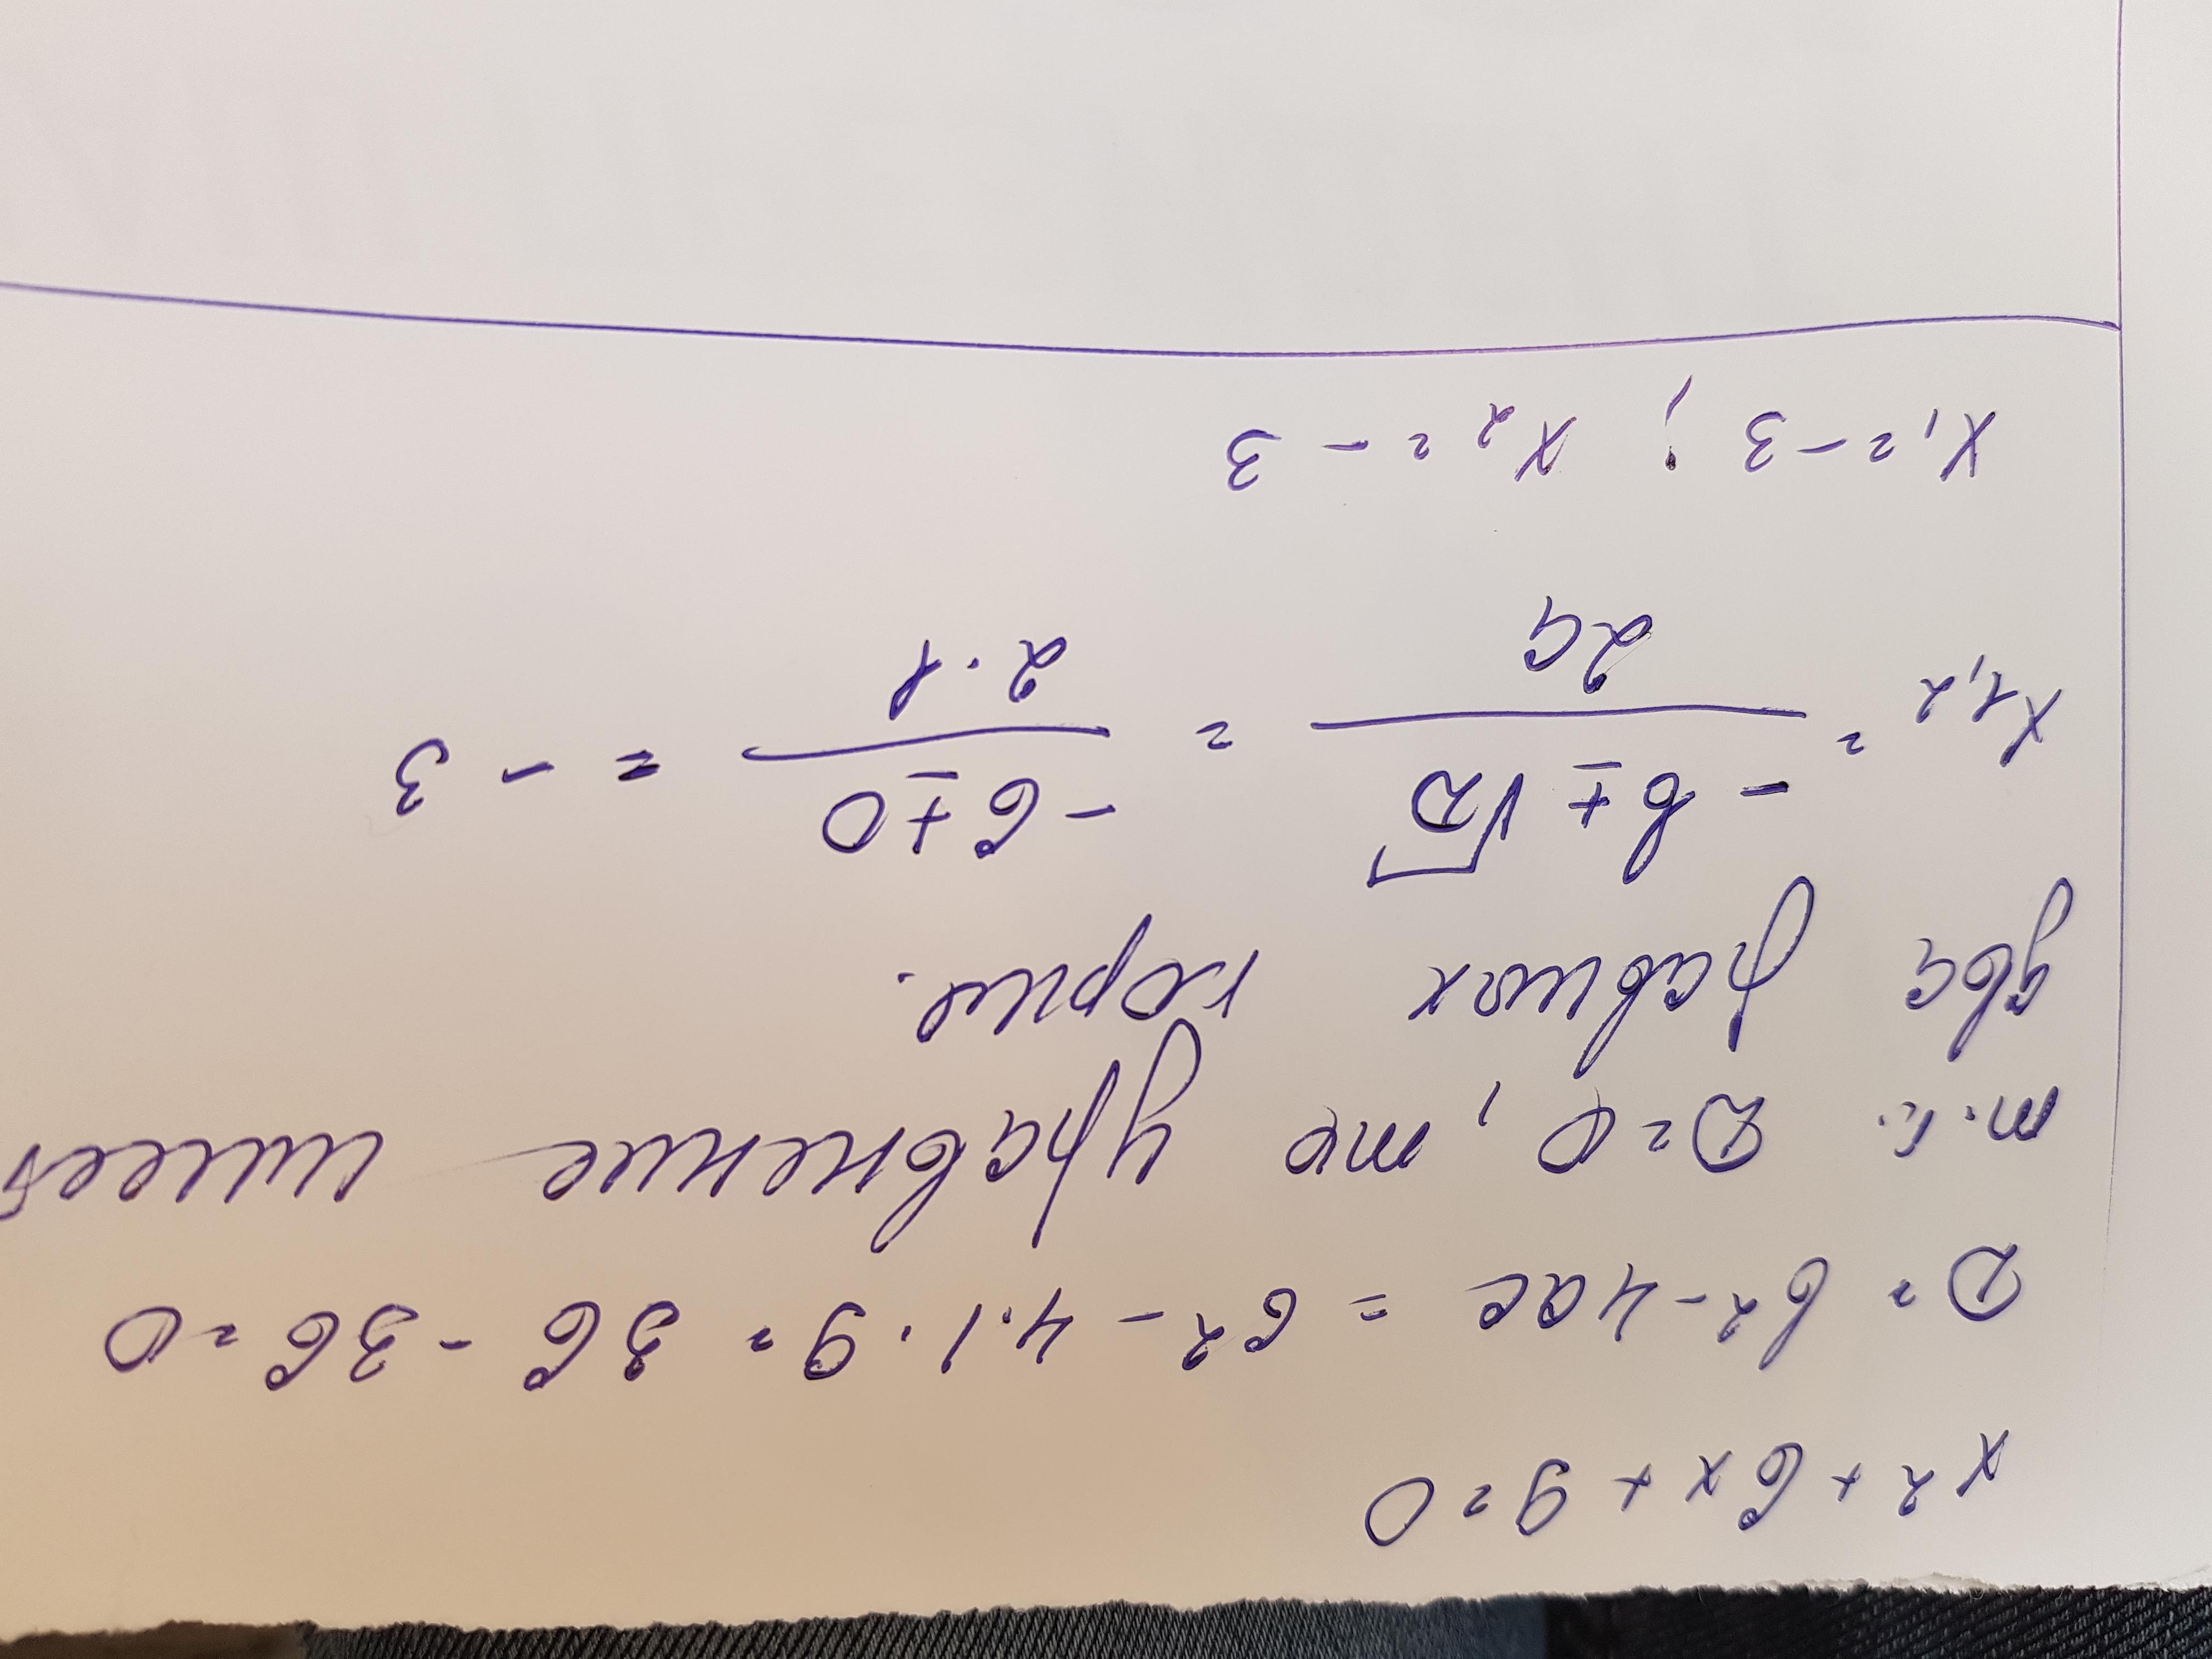 x² + 6x + 9 = 0
D = b² - 4ac = 6² - 4·1·9 = 36 - 36 = 0
т.к. D = 0, то уравнение имеет
два равных корня.
x₁,₂ = (-b ± √D) / 2a = (-6 ± 0) / 2·1 = -3
x₁ = -3; x₂ = -3